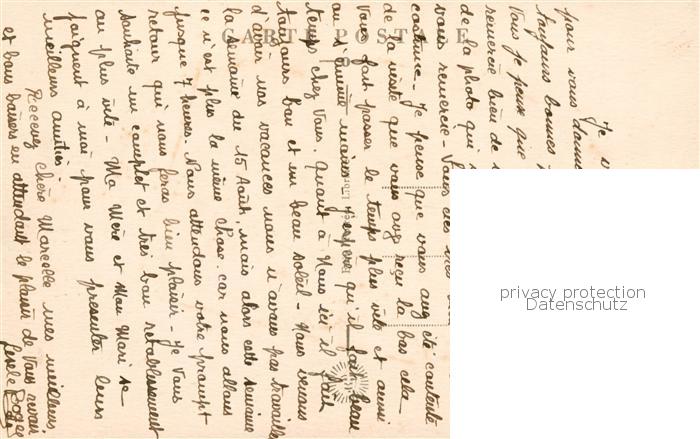 Je v
pour vous donne
toujours bonnes
Vous je pense que
remercie bien de
de la photo qui
vous remercie - Vous
costume - Je pense que vous avez été contente
de la visite que vous avez reçu la bas cela
Vous fait passer le temps plus vite et aussi
au moins j'espère qu'il fait beau
temps chez Vous, quant à Nous ici il fait
toujours bon et un beau soleil - Nous venons
d'avoir nos vacances nous n'avons pas travaillé
la semaine du 15 Août, mais alors cette semaine
ce n'est plus la même chose car nous allons
jusque 7 heures. Nous attendons votre prompt
retour qui nous feras bien plaisir - Je Vous
souhaite un complet et très bon rétablissement
au plus vite - Ma Mère et Mon Mari se
joignent à moi pour vous présenter leurs
meilleurs amitiés
Recevez chère Marcelle mes meilleurs
et bons baisers en attendant le plaisir de Vous revoir
Gisèle
CARTE POSTALE
privacy protection
Datenschutz